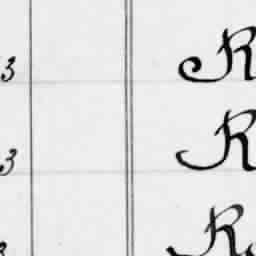 3 R
3 R
3 R